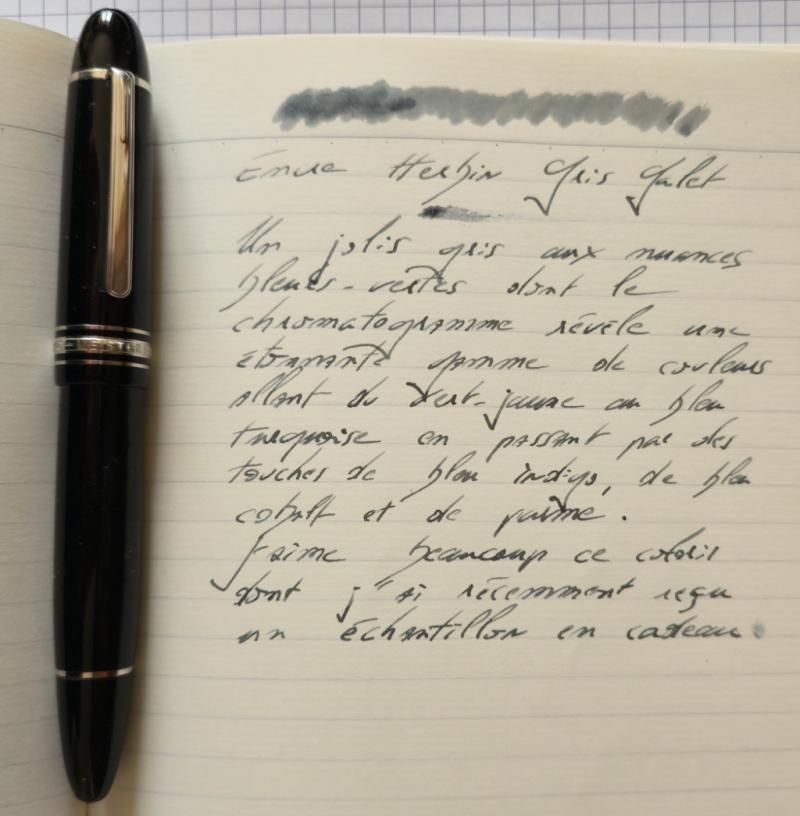 Encre Herbin Gris Galet
Un jolis gris aux nuances
bleues-vertes dont le
chromatogramme révèle une
étonnante gamme de couleurs
allant du vert-jaune au bleu
turquoise en passant par des
touches de bleu indigo, de bleu
cobalt et de parme.
J'aime beaucoup ce coloris
dont j'ai récemment reçu
un échantillon en cadeau